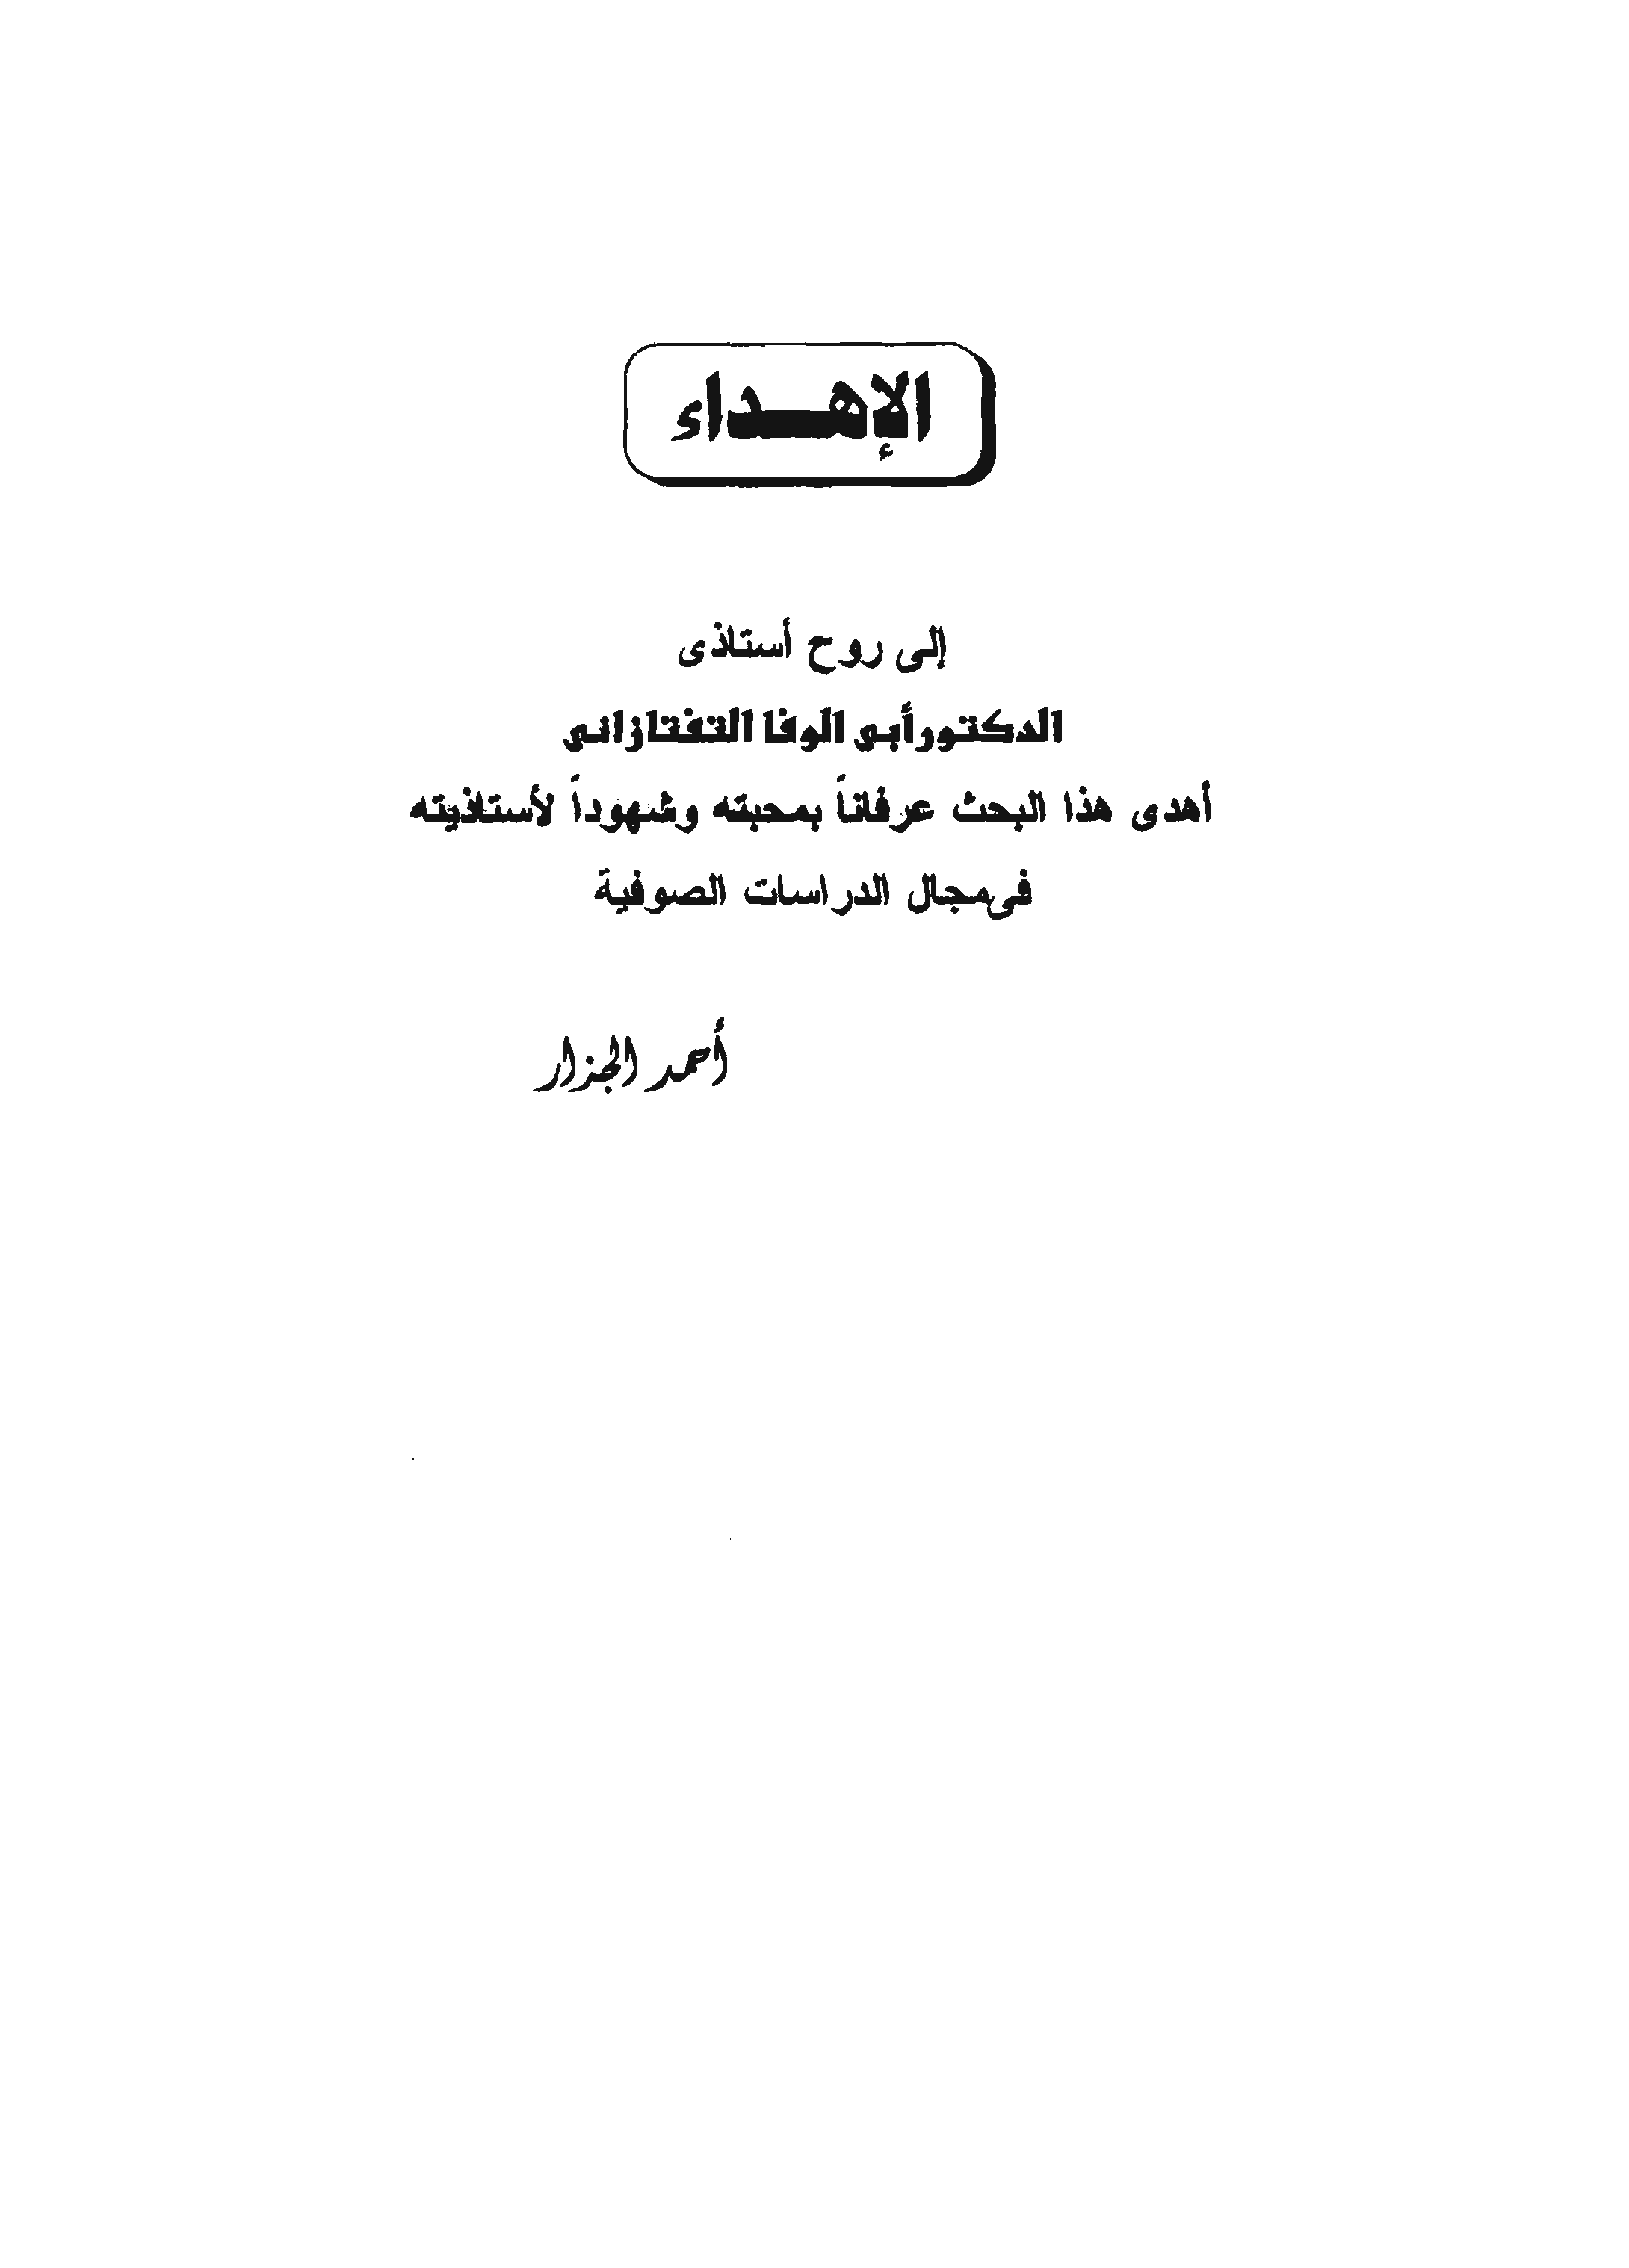 الإهداء
إلى روح أستاذى
الدكتور أبى الوفا التفتازانى
أهدى هذا البحث عرفاناً بمحبته وشهوداً لأستاذيته
فى مجال الدراسات الصوفية
أحمد الجزار